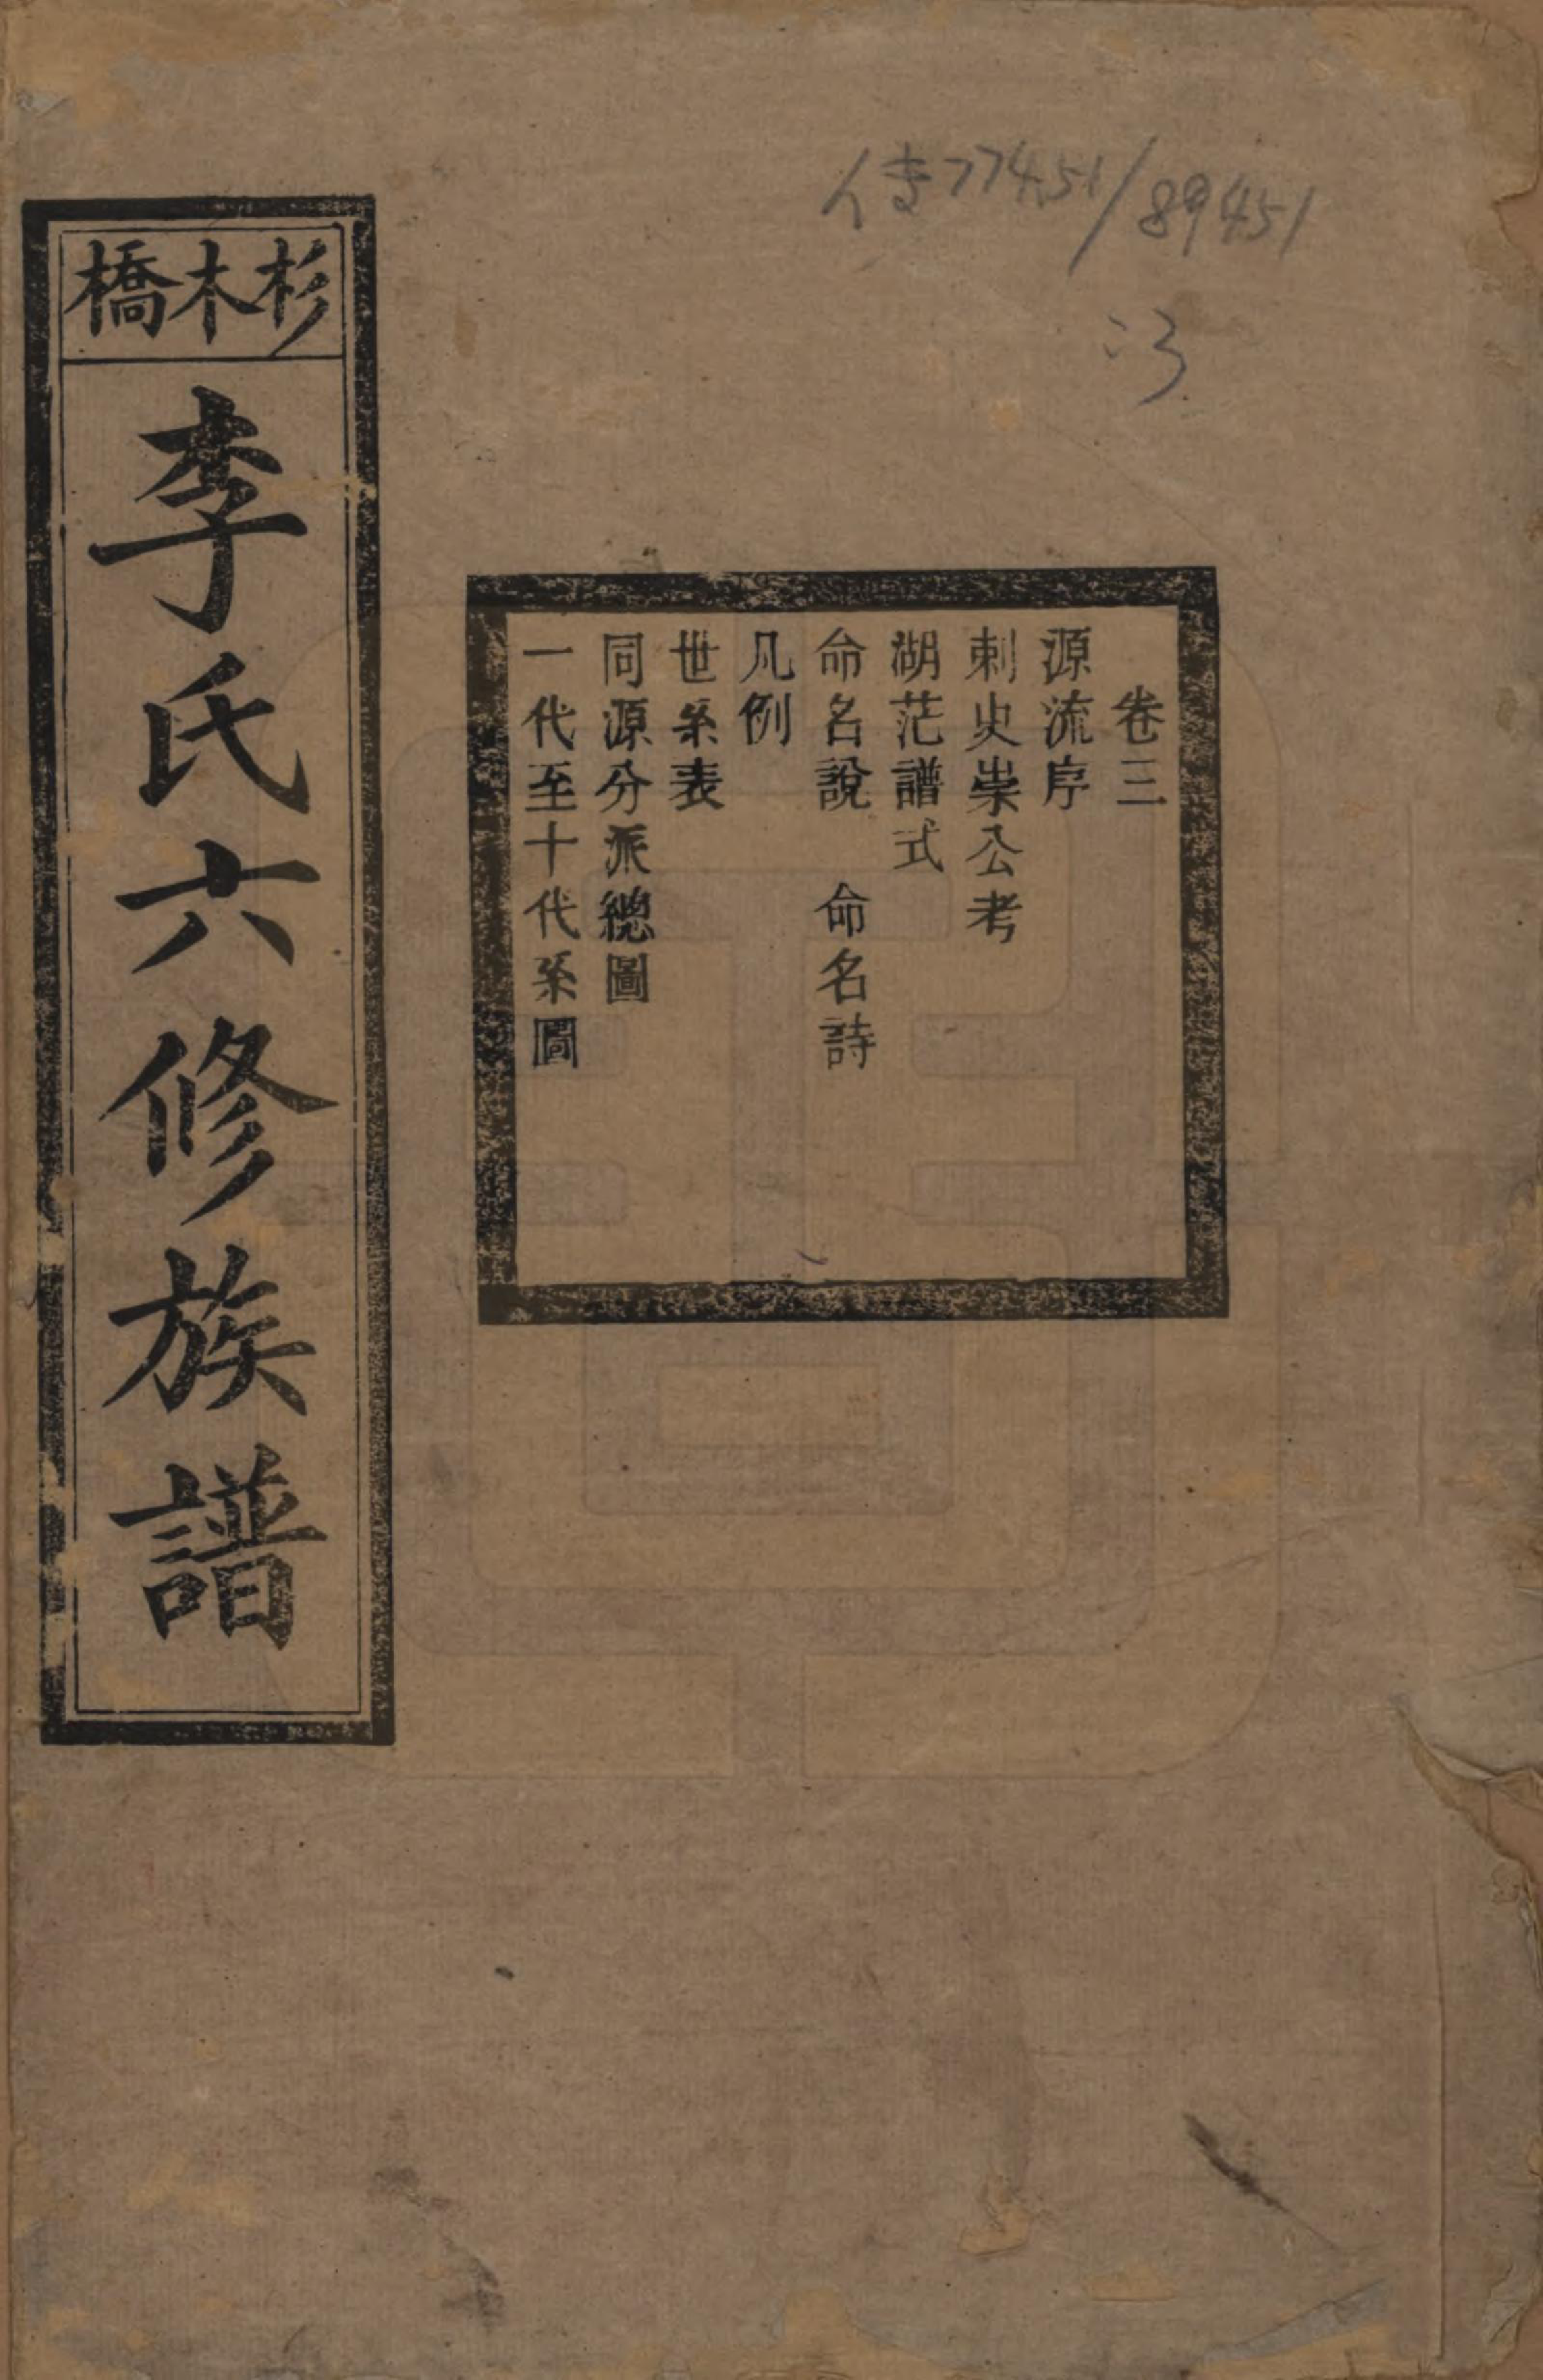 傳77451/89451
:3
卷三
源流序
刺史崇公考
湖茫譜式
命名說　命名詩
凡例
世系表
同源分派總圖
一代至十代系圖
杉木橋
李氏六修族譜